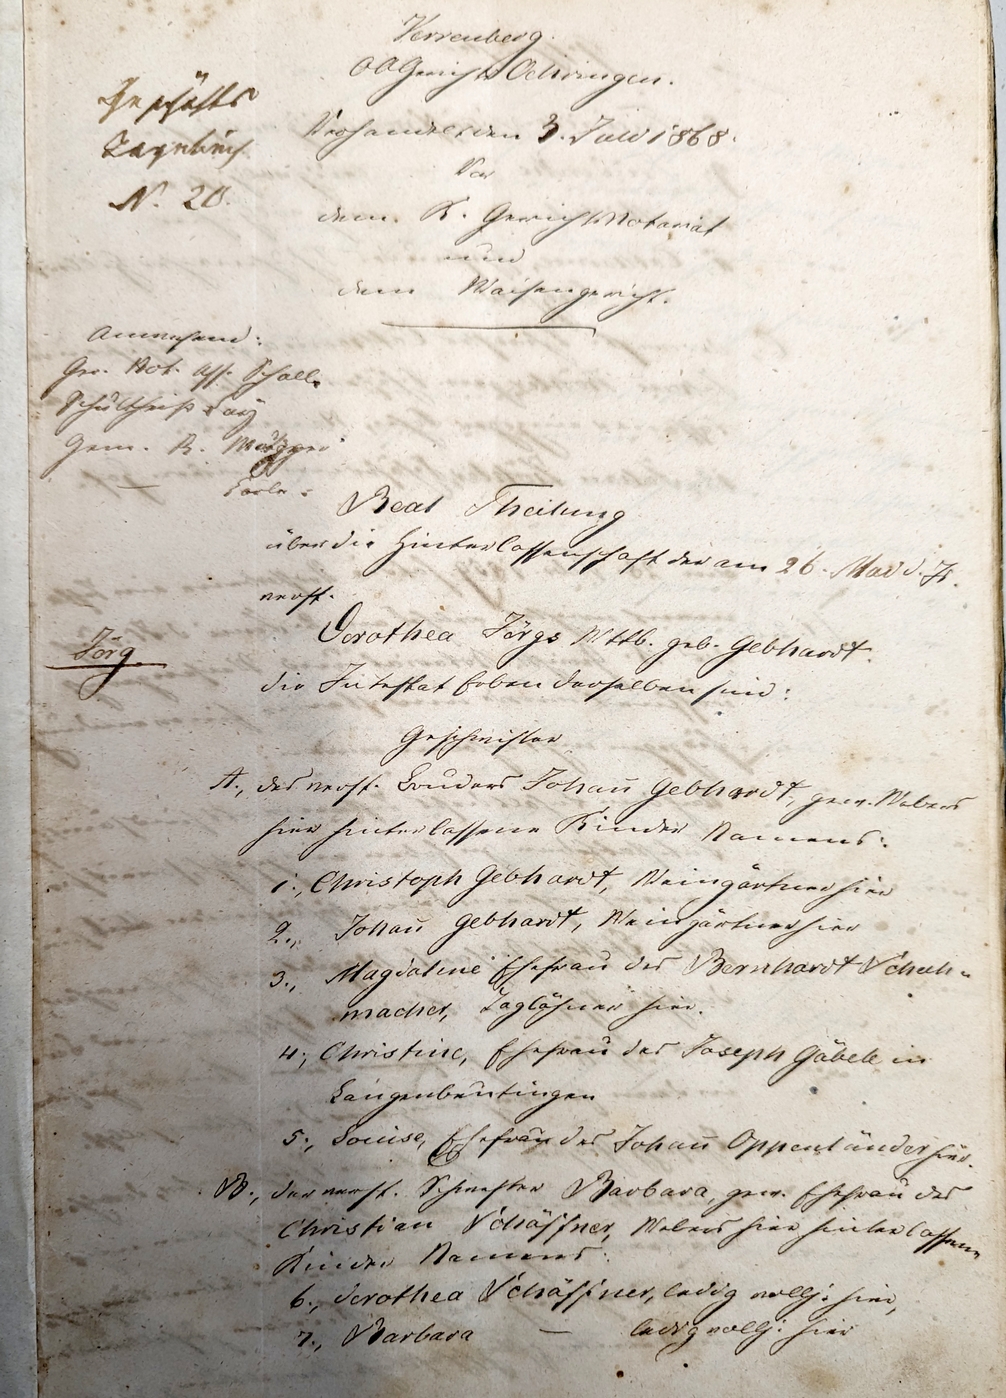 Verrenberg.
OAGerichts Oehringen.
Geschäfts
Tagebuch
N. 20.
Verhandelt den 3. Juli 1868.
Vor
dem K. GerichtsNotariat
und
dem Waisengericht.
Anwesend:
Ger. Not. Ass. Scholl.
Schultheiß
Gem. R.
—
Real Theilung
über die Hinterlassenschaft der am 26. Mai d. Js.
verst.
Jörg.
Dorothea Jörgs Wttb. geb. Gebhardt.
die Intestat Erben derselben sind:
Geschwister
A., des verst. Bruders Johañ Gebhardt, gew. Webers
hier hinterlassene Kinder Namens:
1., Christoph Gebhardt, Weingärtner hier
2., Johañ Gebhardt, Weingärtner hier
3., Magdalene Ehefrau des Bernhardt Schuh-
macher, Taglöhner hier.
4., Christine, Ehefrau des Joseph Gäbele in
Langenbeutingen
5., Louise, Ehefrau des Johañ Oppenländer hier.
B., der verst. Schwester Barbara, gew. Ehefrau des
Christian Schäffner, Webers hier hinterlassene
Kinder Namens:
6., Dorothea Schäffner, ledig vollj. hier,
7., Barbara — ledig vollj. hier